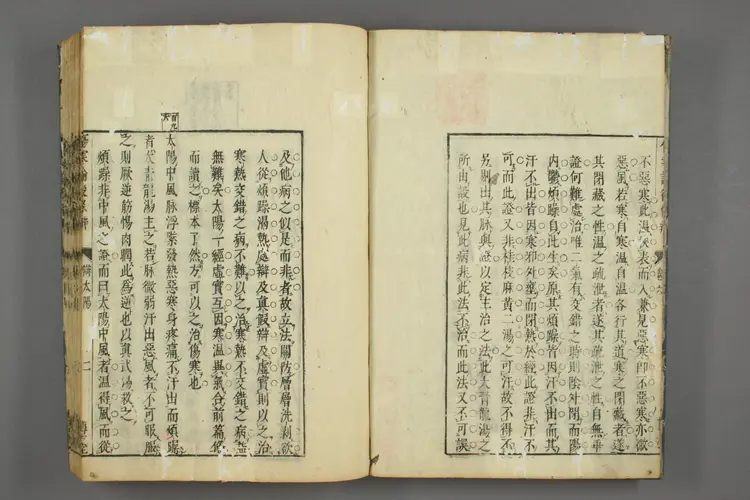 不惡寒此溫從表而入兼見惡寒即不惡寒亦微
惡風若寒自寒溫自溫各行其道寒之閉藏者遂
其閉藏之性溫之疏泄者遂其疏泄之性自無難
證何難處治唯二氣有交錯之時則陰外閉而陽
內鬱煩躁自此生矣原其煩躁皆因汗不出而其
汗不出皆因寒邪外壅而閉熱於經此證非汗不
可而此證又非桂枝麻黃二湯之可汗故不得不
另剔出其脉與證以定主治之法此大青龍湯之
所由設也見此病非此法不治而此法又不可誤
及他病之似是而非者故立法關防層層洗剥欲
人從煩躁渴熱處辯及真假辯及虛實則以之治
寒熱交錯之病不難以之治寒熱不交錯之病益
無難矣太陽一經虛實互因寒溫與氣合前篇
而讀之標本了然方可以之治傷寒也
太陽中風脉浮緊發熱惡寒身疼痛不汗出而煩躁
者大青龍湯主之若脉微弱汗出惡風者不可服服
之則厥逆筋惕肉瞤此爲逆也以真武湯救之
煩躁非中風之證而曰太陽中風者溫得風而從
辯太陽
二